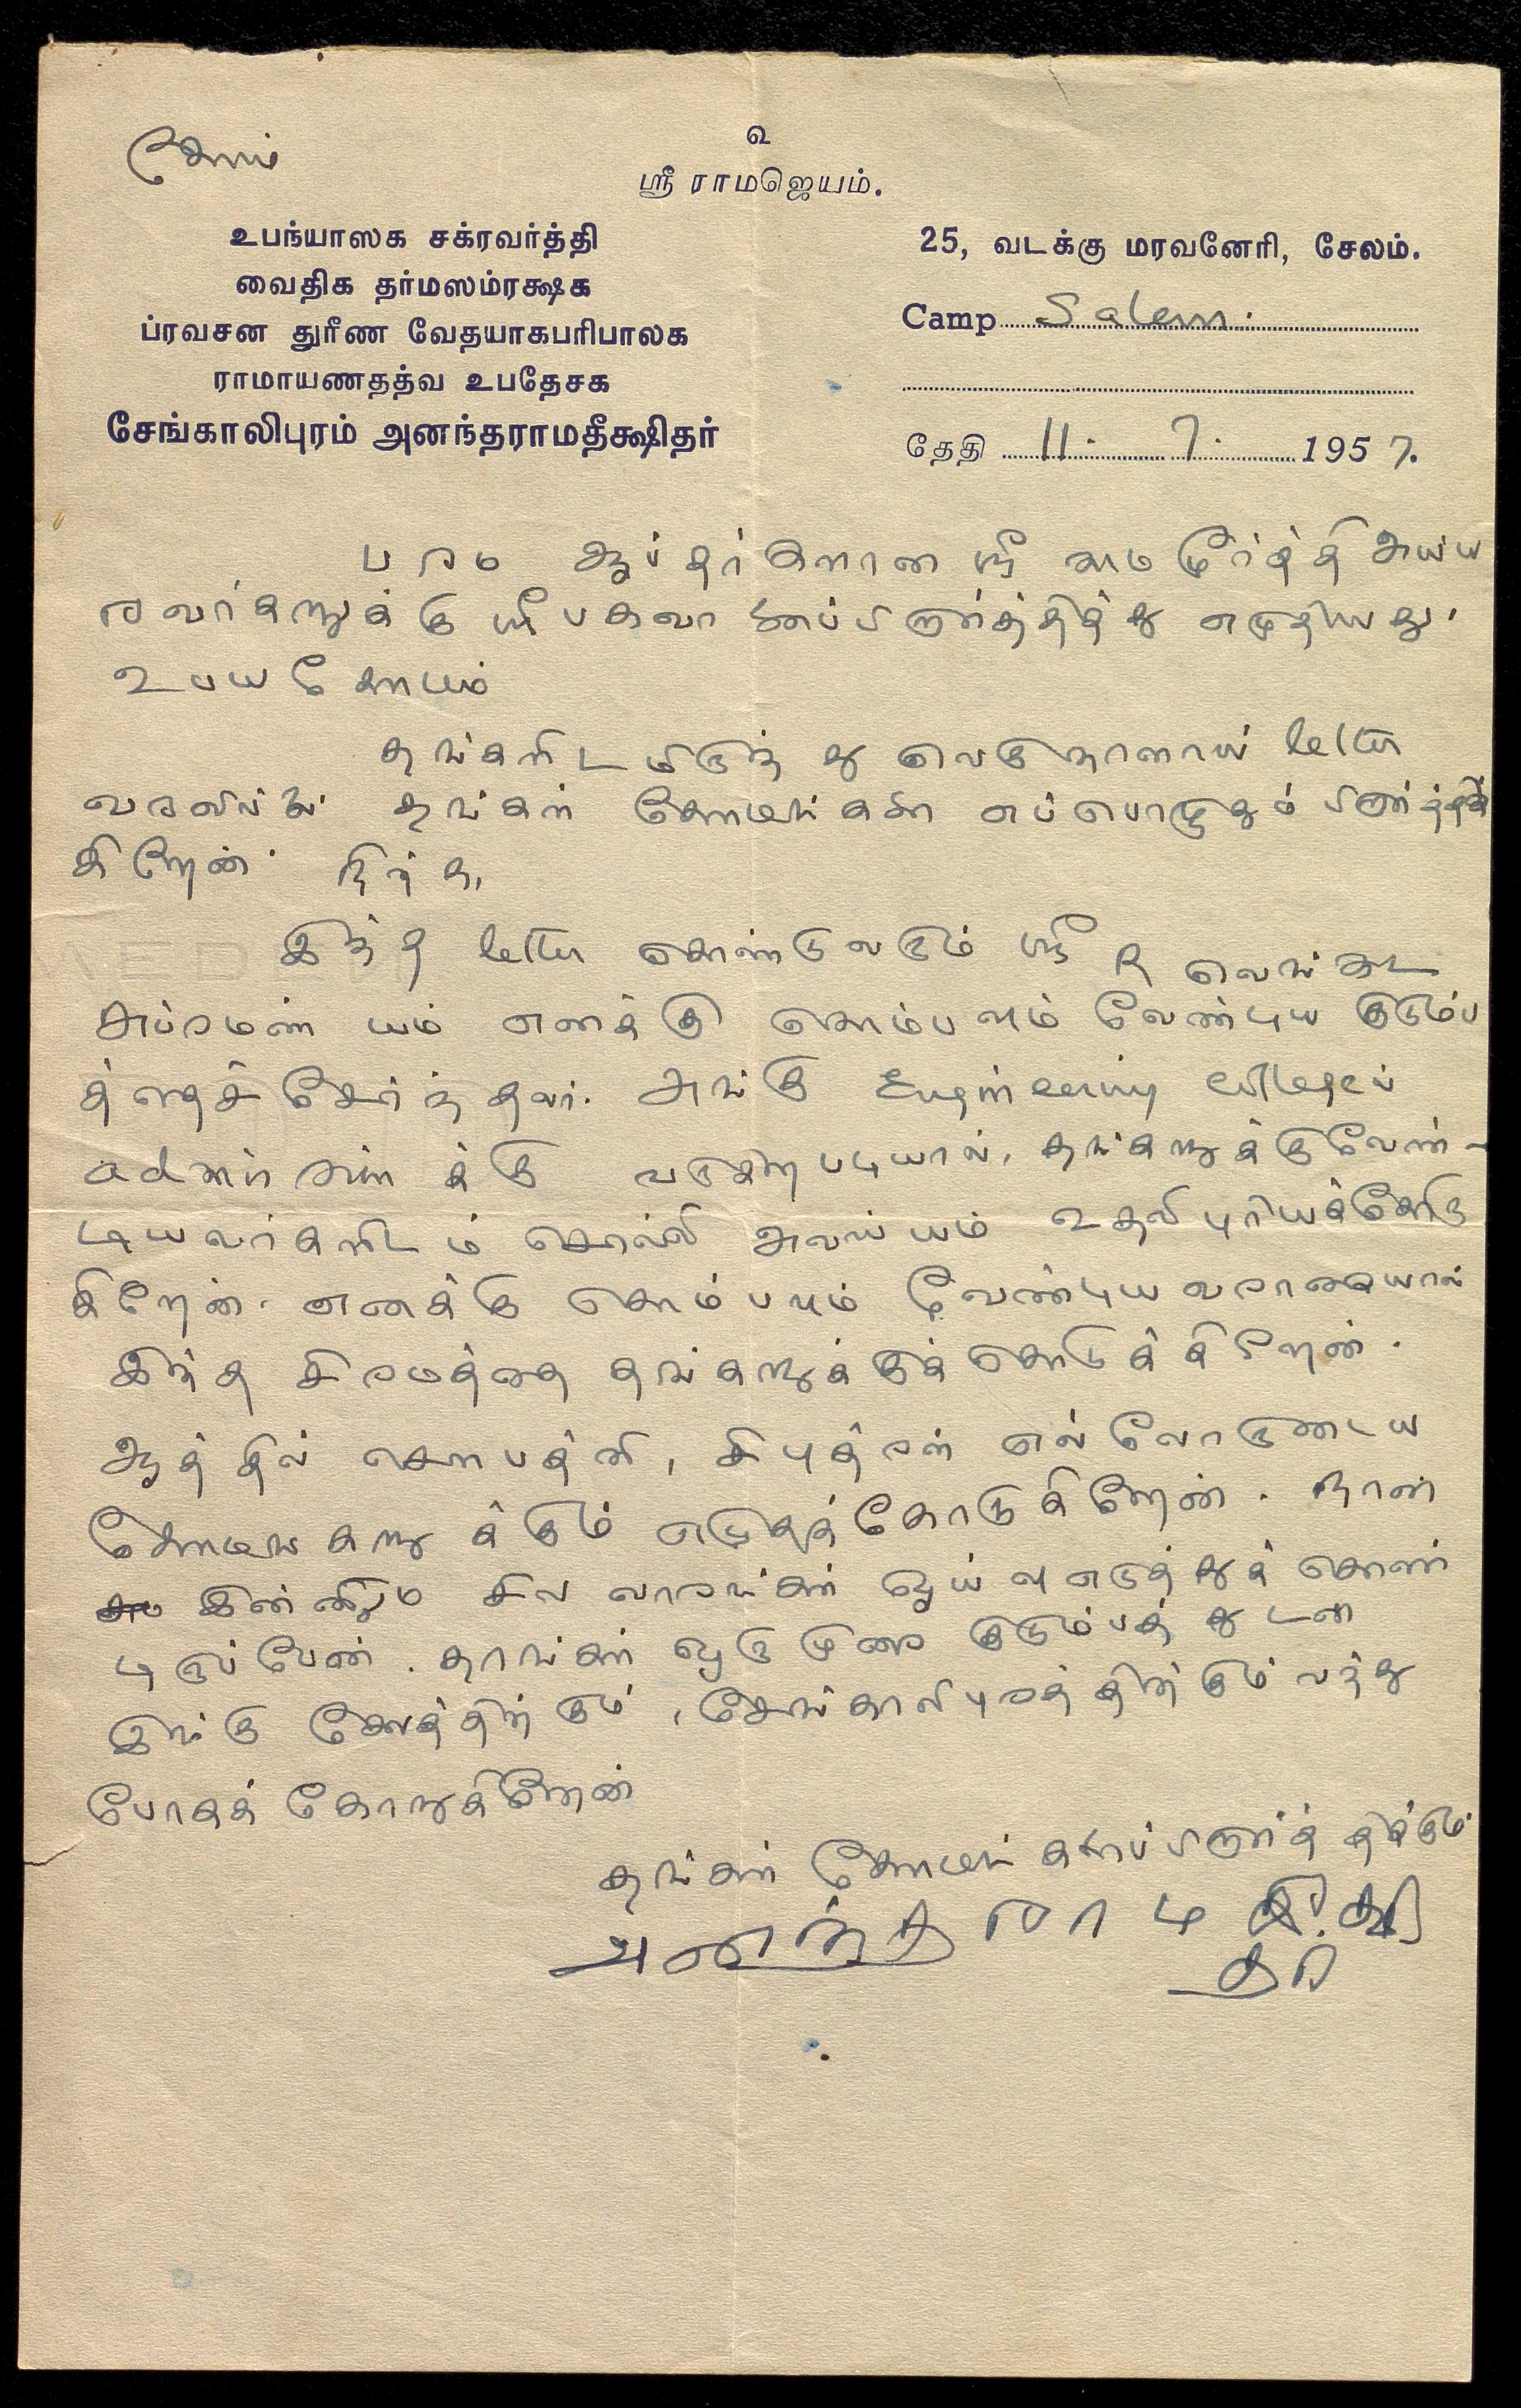 க்ஷேமம்
உ
ஸ்ரீ ராமஜெயம்.
உபந்யாஸக சக்ரவர்த்தி
வைதிக தர்மஸம்ரக்ஷக
ப்ரவசன துரீண வேதயாகபரிபாலக
ராமாயணதத்வ உபதேசக
சேங்காலிபுரம் அனந்தராமதீக்ஷிதர்
25, வடக்கு மரவனேரி, சேலம்.
Camp Salem.
தேதி 11. 7. 1957.
பரம ஆப்தர்களான ஸ்ரீ ராமமூர்த்தி அய்ய
ரவர்களுக்கு ஸ்ரீ பகவானைப் பிரார்த்தித்து எழுதியது.
உபய க்ஷேமம்
தங்களிடமிருந்து வெகுநாளாய் letter
வரவில்லை. தங்கள் க்ஷேமங்களை எப்பொழுதும் பிரார்த்திக்
கிறேன். நிற்க,
இந்த letter கொண்டுவரும் ஸ்ரீ R வெங்கட
சுப்ரமண்யம் எனக்கு ரொம்பவும் வேண்டிய குடும்ப
த்தைச் சேர்ந்தவர். அங்கு Engineering Collegeல்
admission க்கு வருகிறபடியால், தங்களுக்கு வேண்-
டியவர்களிடம் சொல்லி அவஸ்யம் உதவி புரியக்கோரு
கிறேன். எனக்கு ரொம்பவும் வேண்டியவரானதால்
இந்த சிரமத்தை தங்களுக்குக் கொடுக்கிறேன்.
ஆத்தில் ஸௌபத்னி, சி புத்ரன் எல்லோருடைய
க்ஷேமங்களுக்கும் எழுதக்கோருகிறேன். நான்
இன்னும் சில வாரங்கள் ஓய்வு எடுத்துக் கொண்
டிருப்பேன். தாங்கள் ஒரு முறை குடும்பத்துடன்
இங்கு சேலத்திற்கும், சேங்காலிபுரத்திற்கும் வந்து
போகக் கோருகிறேன்
தங்கள் க்ஷேமங்களைப் பிரார்த்திக்கும்
அனந்தராம தீக்ஷி
தர்